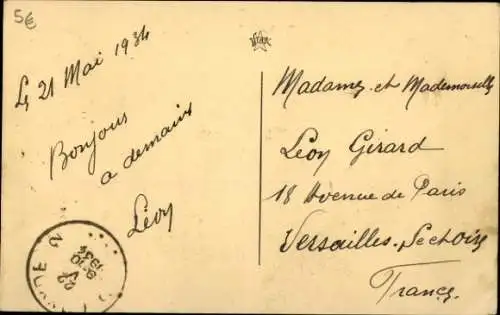 5€
Le 21 Mai 1934
Bonjour
a demain
Léon
Madame et Mademoiselle
Léon Girard
18 Avenue de Paris
Versailles
France